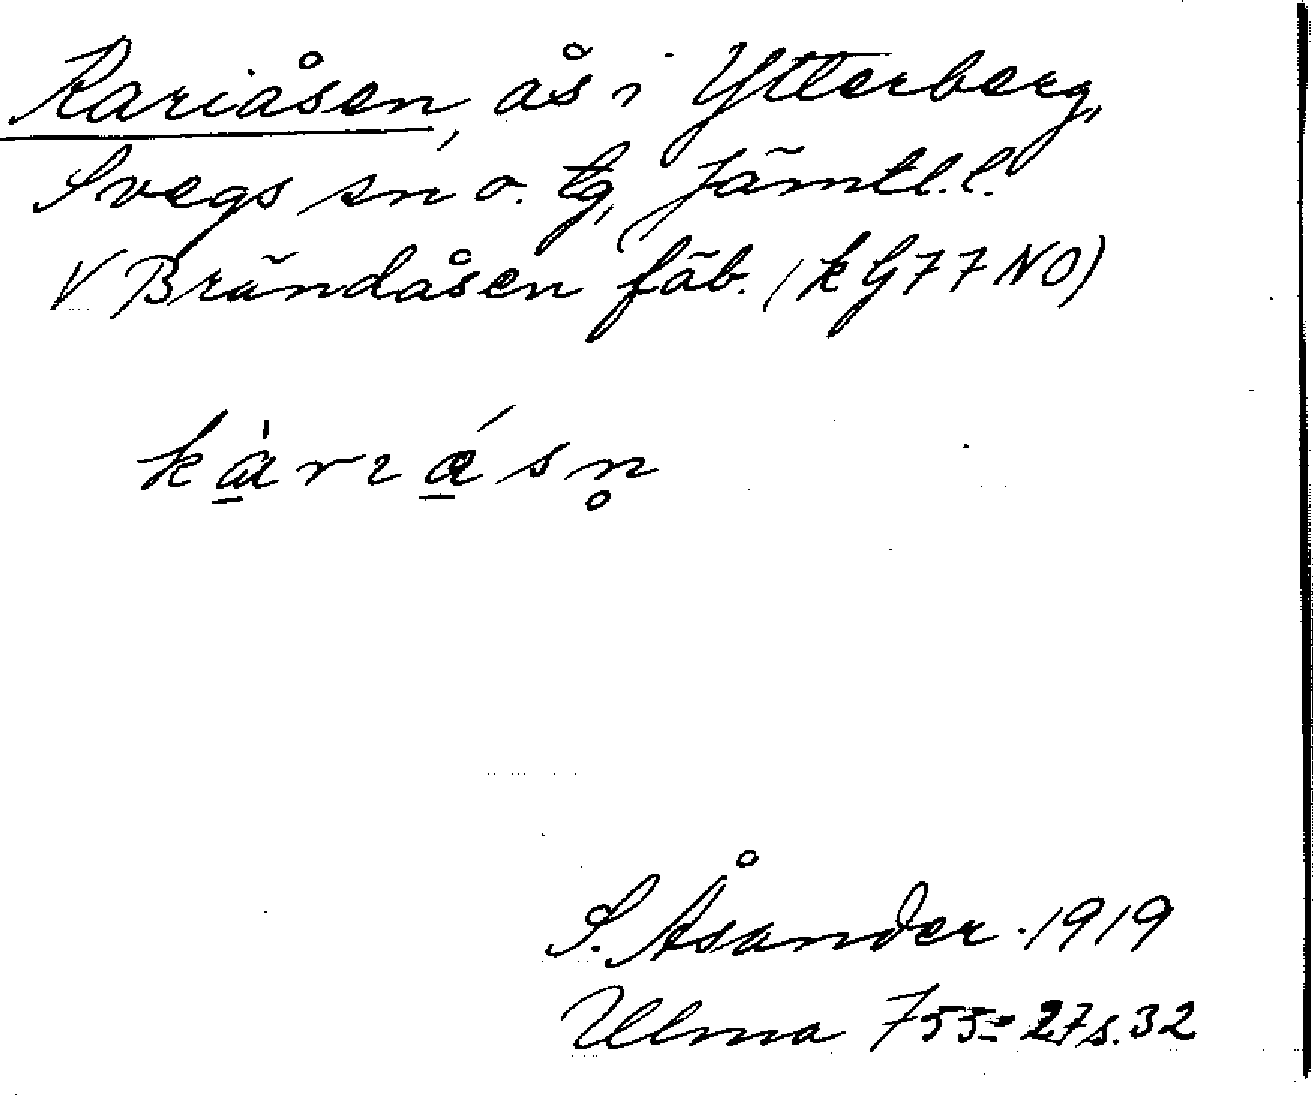 Kariåsen, ås i Ytterberg,
Svegs sn o. tg, Jämtl.l.
V Brändåsen fäb. (k G77 NO)
kàrıásn̥
S. Åsander 1919
Ulma 755:27 s. 32